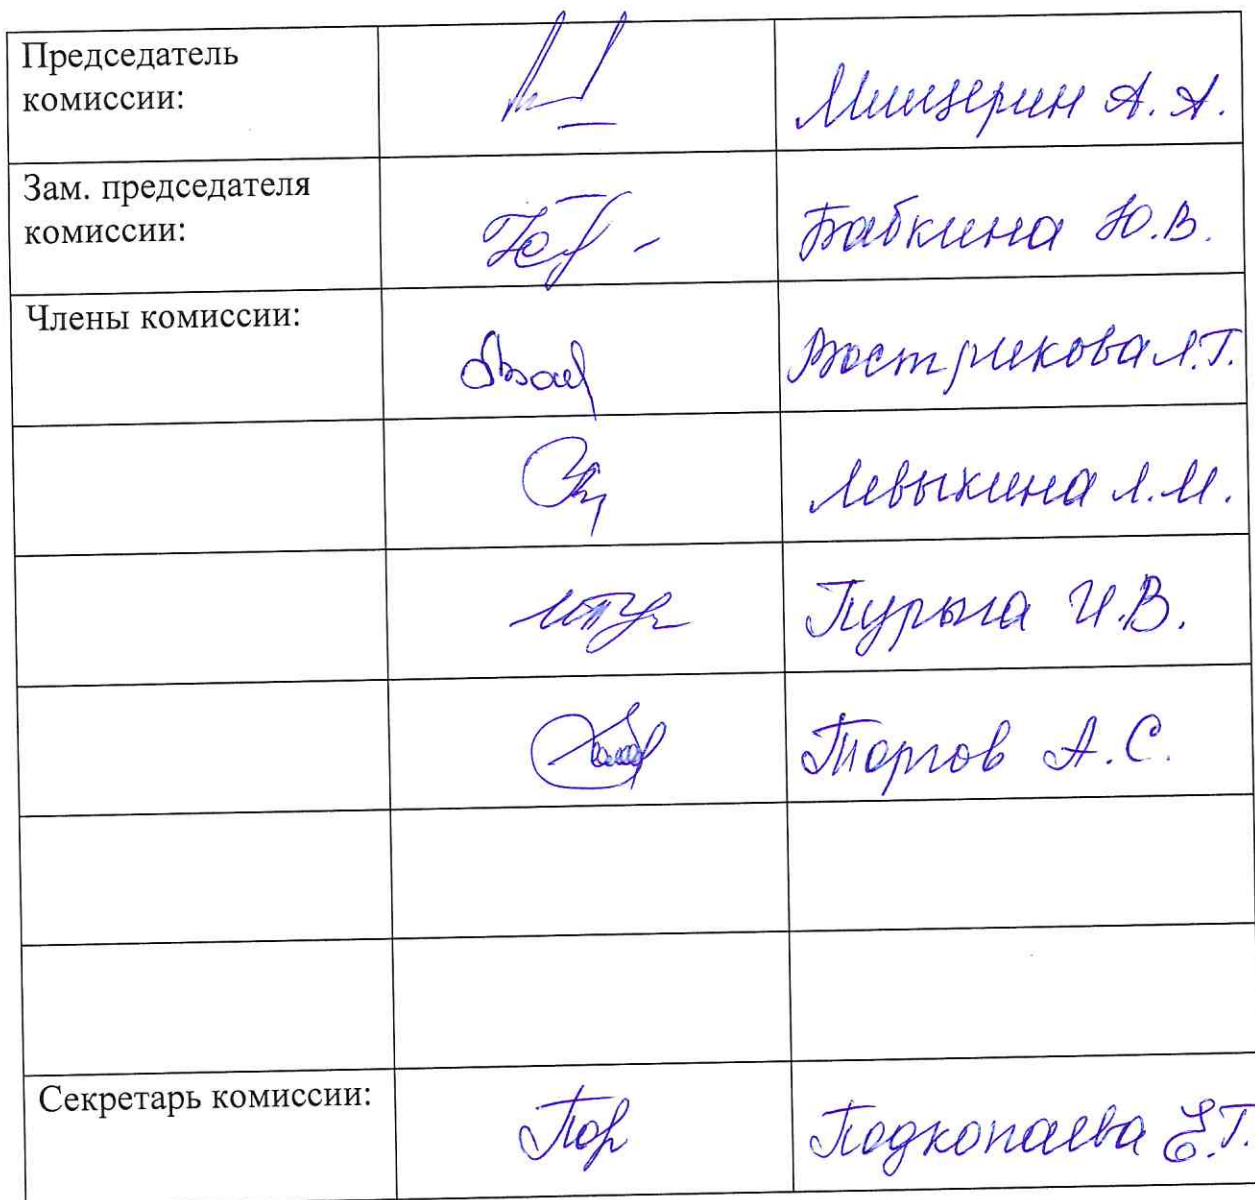 Председатель
комиссии:
Мищерин А.А.
Зам. председателя
комиссии:
Бабкина Ю.В.
Члены комиссии:
Вострикова Л.Г.
Левыкина Л.М.
Пурыга И.В.
Торгов А.С.
Секретарь комиссии:
Подкопаева Е.Г.